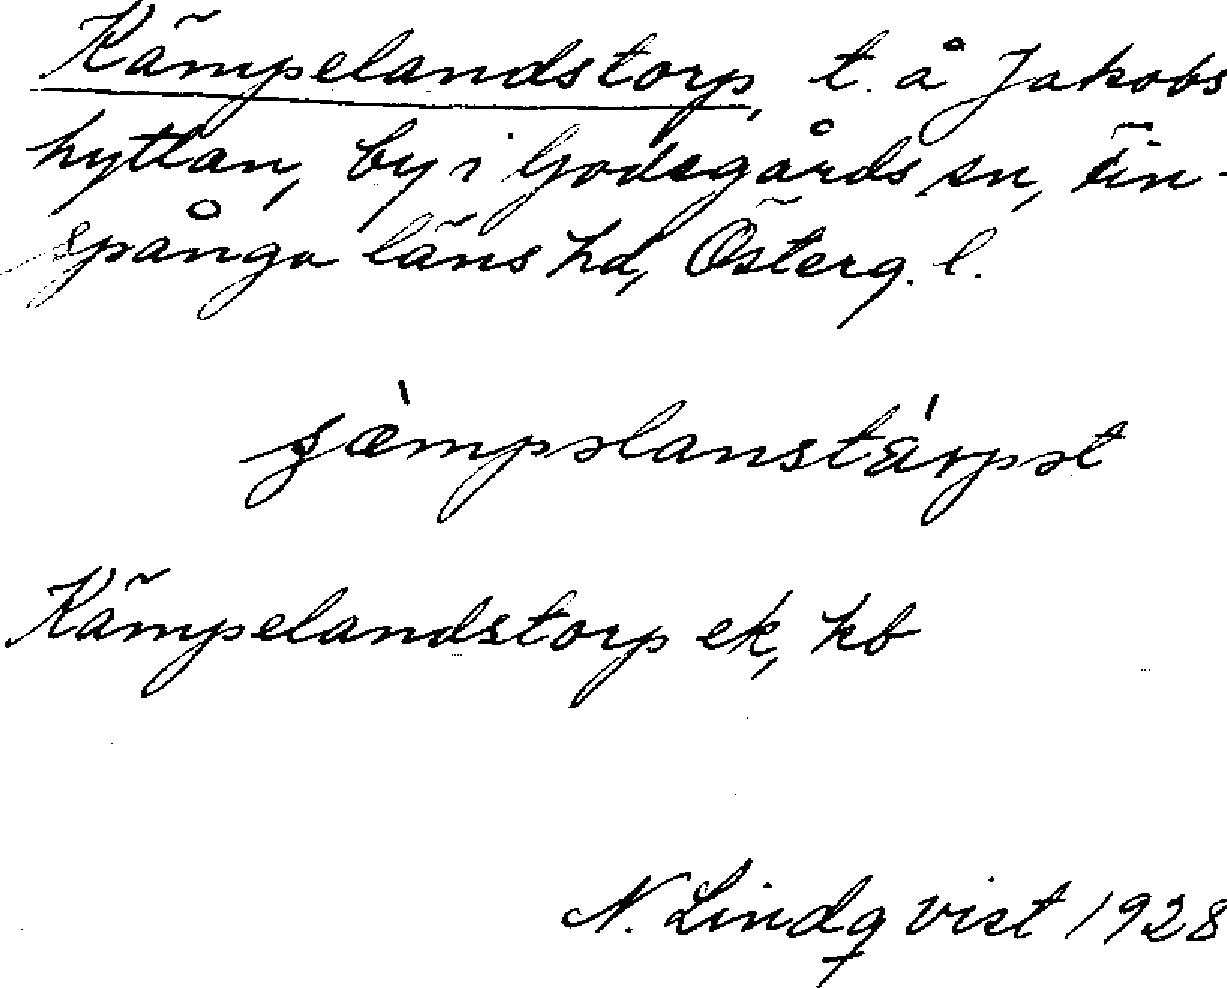 Kämpelandstorp, t. å Jakobs
hyttan, by i Godegårds sn, Fin-
spånga läns hd, Österg. l.
Kämpelandstorp ek, kb
N. Lindqvist 1928